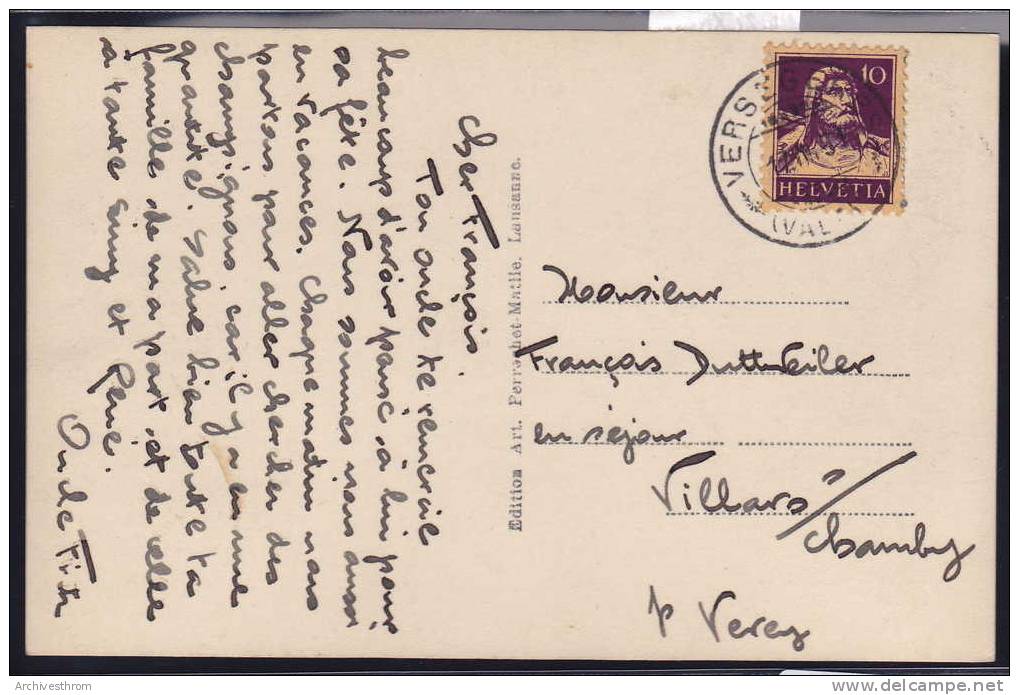 Cher François.
Ton oncle te remercie
beaucoup d'avoir pensé à lui pour
sa fête. Nous sommes nous aussi
en vacances. Chaque matin nous
partons pour aller chercher des
champignons, car il y a en une
quantité. Salue bien toute ta
famille de ma part et de celle
à tante Simy et René.
Oncle Fritz
Edition Art. Perrochet-Matile. Lausanne.
10
HELVETIA
VERS
(VAL
Monsieur
François Duttweiler
en séjour
Villars s/
Chamby
p Vevey
Archivesthrom
www.delcampe.net